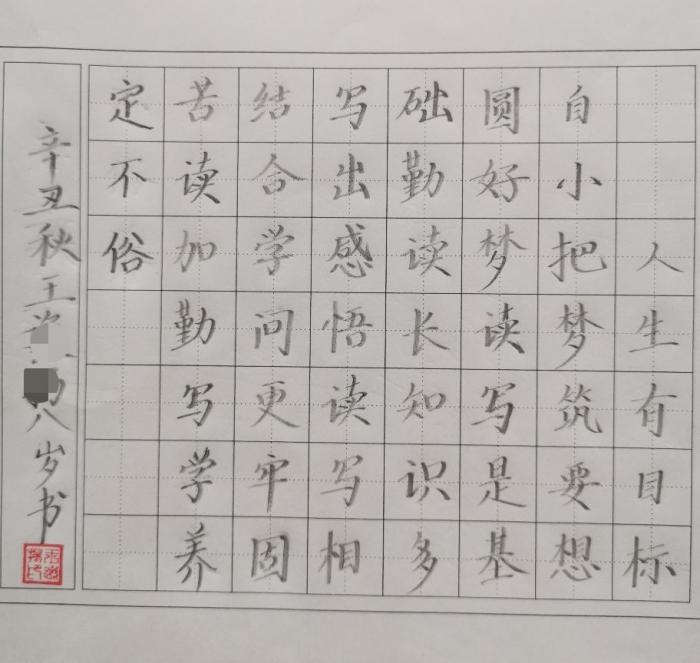 人生有目标
自小把梦筑要想
圆好梦读写是基
础勤读长知识多
写出感悟读写相
结合学问更牢固
苦读加勤写学养
定不俗
辛丑秋王
八岁书